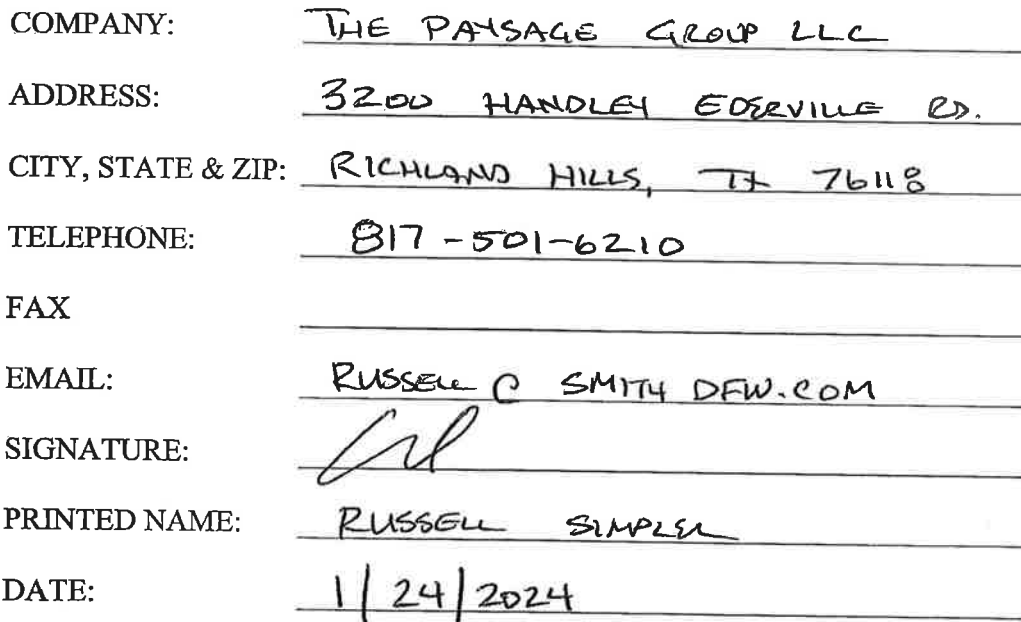 COMPANY: THE PAYSAGE GROUP LLC
ADDRESS: 3200 HANDLEY EDERVILLE RD.
CITY, STATE & ZIP: RICHLAND HILLS, TX 76118
TELEPHONE: 817-501-6210
FAX
EMAIL: RUSSELL @ SMITH DFW.COM
SIGNATURE:
PRINTED NAME: RUSSELL SIMPLER
DATE: 1/24/2024